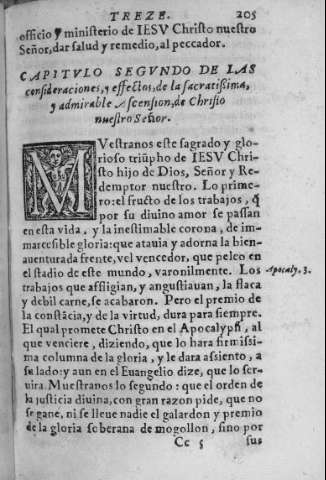 TREZE. 205
officio y ministerio de IESV Christo nuestro
Señor, dar salud y remedio, al peccador.
CAPITVLO SEGVNDO DE LAS
consideraciones, y effectos, de la sacratissima,
y admirable Ascension, de Christo
nuestro Señor.
MVestranos este sagrado y glo-
rioso triũpho de IESV Chri-
sto hijo de Dios, Señor y Re-
demptor nuestro. Lo prime-
ro: el fructo de los trabajos, q̃
por su diuino amor se passan
en esta vida, y la inestimable corona, de im-
marcesible gloria: que atauia y adorna la bien-
auenturada frente, del vencedor, que peleo en
el stadio de este mundo, varonilmente. Los
Apocaly. 3.
trabajos que affligian, y angustiauan, la flaca
y debil carne, se acabaron. Pero el premio de
la constãcia, y de la virtud, dura para siempre.
El qual promete Christo en el Apocalypsi, al
que venciere, diziendo, que lo hara firmissi-
ma columna de la gloria, y le dara assiento, a
su lado: y aun en el Euangelio dize, que lo ser-
uira. Muestranos lo segundo: que el orden de
la justicia diuina, con gran razon pide, que no
se gane, ni se lleue nadie el galardon y premio
de la gloria soberana de mogollon, sino por
Cc 5 sus